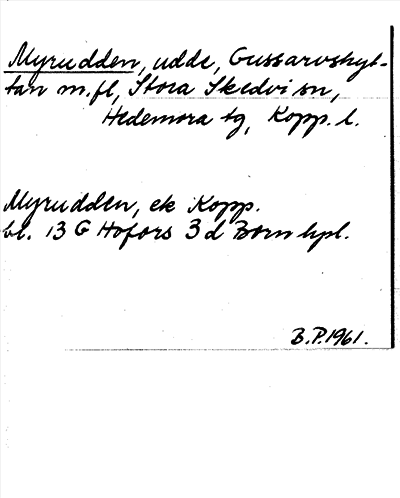 Myrudden, udde, Gussarvshyt-
tan m.fl, Stora Skedvi sn,
Hedemora tg, Kopp. l.
Myrudden, ek Kopp.
bl. 13 G Hofors 3 d Born hpl.
B.P. 1961.